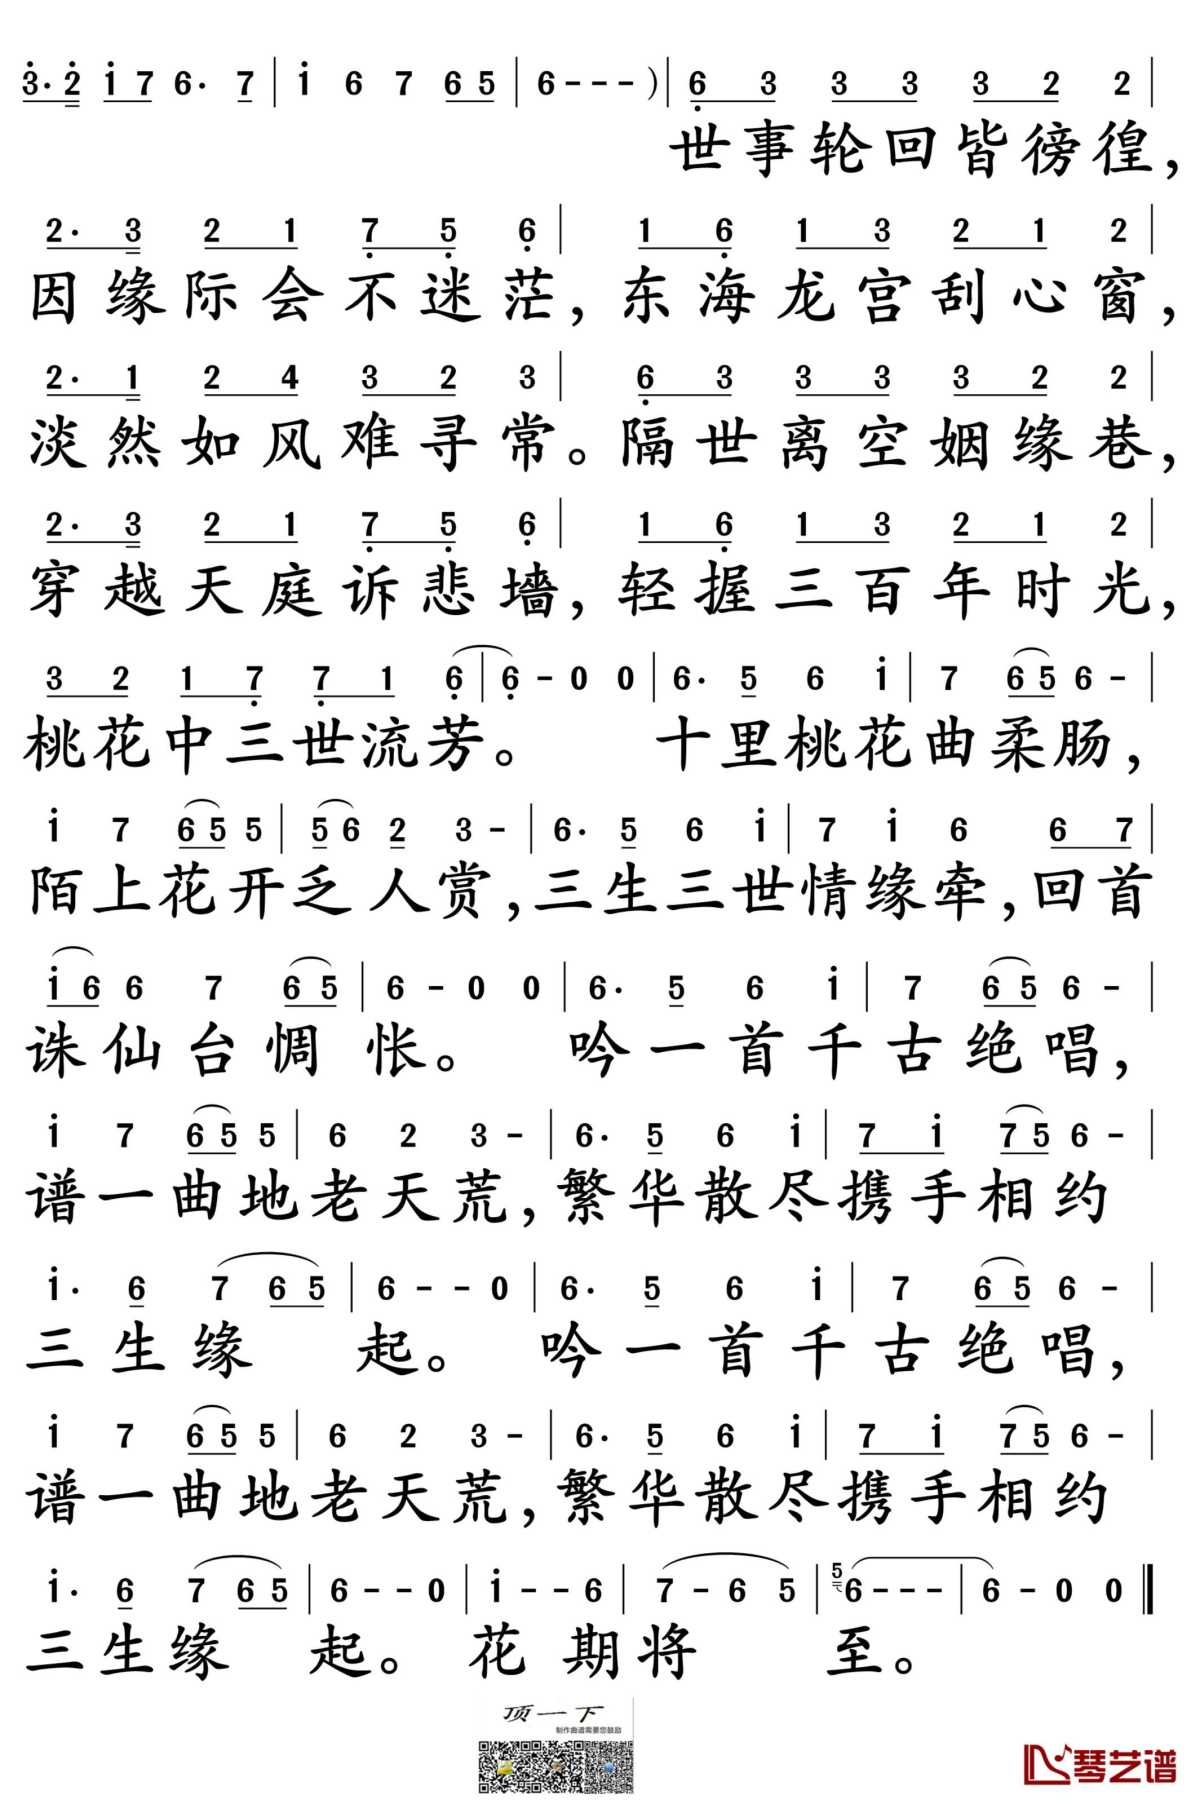 3· 2 1 7 6· 7 | 1 6 7 6 5 | 6 - - - ) | 6 3 3 3 3 2 2 |
世事轮回皆徬徨，
2· 3 2 1 7 5 6 | 1 6 1 3 2 1 2 |
因缘际会不迷茫，东海龙宫刮心窗，
2· 1 2 4 3 2 3 | 6 3 3 3 3 2 2 |
淡然如风难寻常。隔世离空姻缘巷，
2· 3 2 1 7 5 6 | 1 6 1 3 2 1 2 |
穿越天庭诉悲墙，轻握三百年时光，
3 2 1 7 7 1 6 | 6 - 0 0 | 6· 5 6 1 | 7 6 5 6 - |
桃花中三世流芳。 十里桃花曲柔肠，
1 7 6 5 5 | 5 6 2 3 - | 6· 5 6 1 | 7 1 6 6 7 |
陌上花开乏人赏，三生三世情缘牵，回首
1 6 6 7 6 5 | 6 - 0 0 | 6· 5 6 1 | 7 6 5 6 - |
诛仙台惆怅。 吟一首千古绝唱，
1 7 6 5 5 | 6 2 3 - | 6· 5 6 1 | 7 1 7 5 6 - |
谱一曲地老天荒，繁华散尽携手相约
1· 6 7 6 5 | 6 - - 0 | 6· 5 6 1 | 7 6 5 6 - |
三生缘 起。 吟一首千古绝唱，
1 7 6 5 5 | 6 2 3 - | 6· 5 6 1 | 7 1 7 5 6 - |
谱一曲地老天荒，繁华散尽携手相约
1· 6 7 6 5 | 6 - - 0 | 1 - - 6 | 7 - 6 5 | 5 6 - - - | 6 - 0 0 ‖
三生缘 起。 花 期将 至。
顶一下
制作曲谱需要您鼓励
琴艺谱